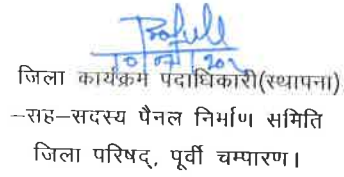 जिला कार्यक्रम पदाधिकारी(स्थापना)
–सह–सदस्य पैनल निर्भाण समिति
जिला परिषद्, पूर्वी चम्पारण।